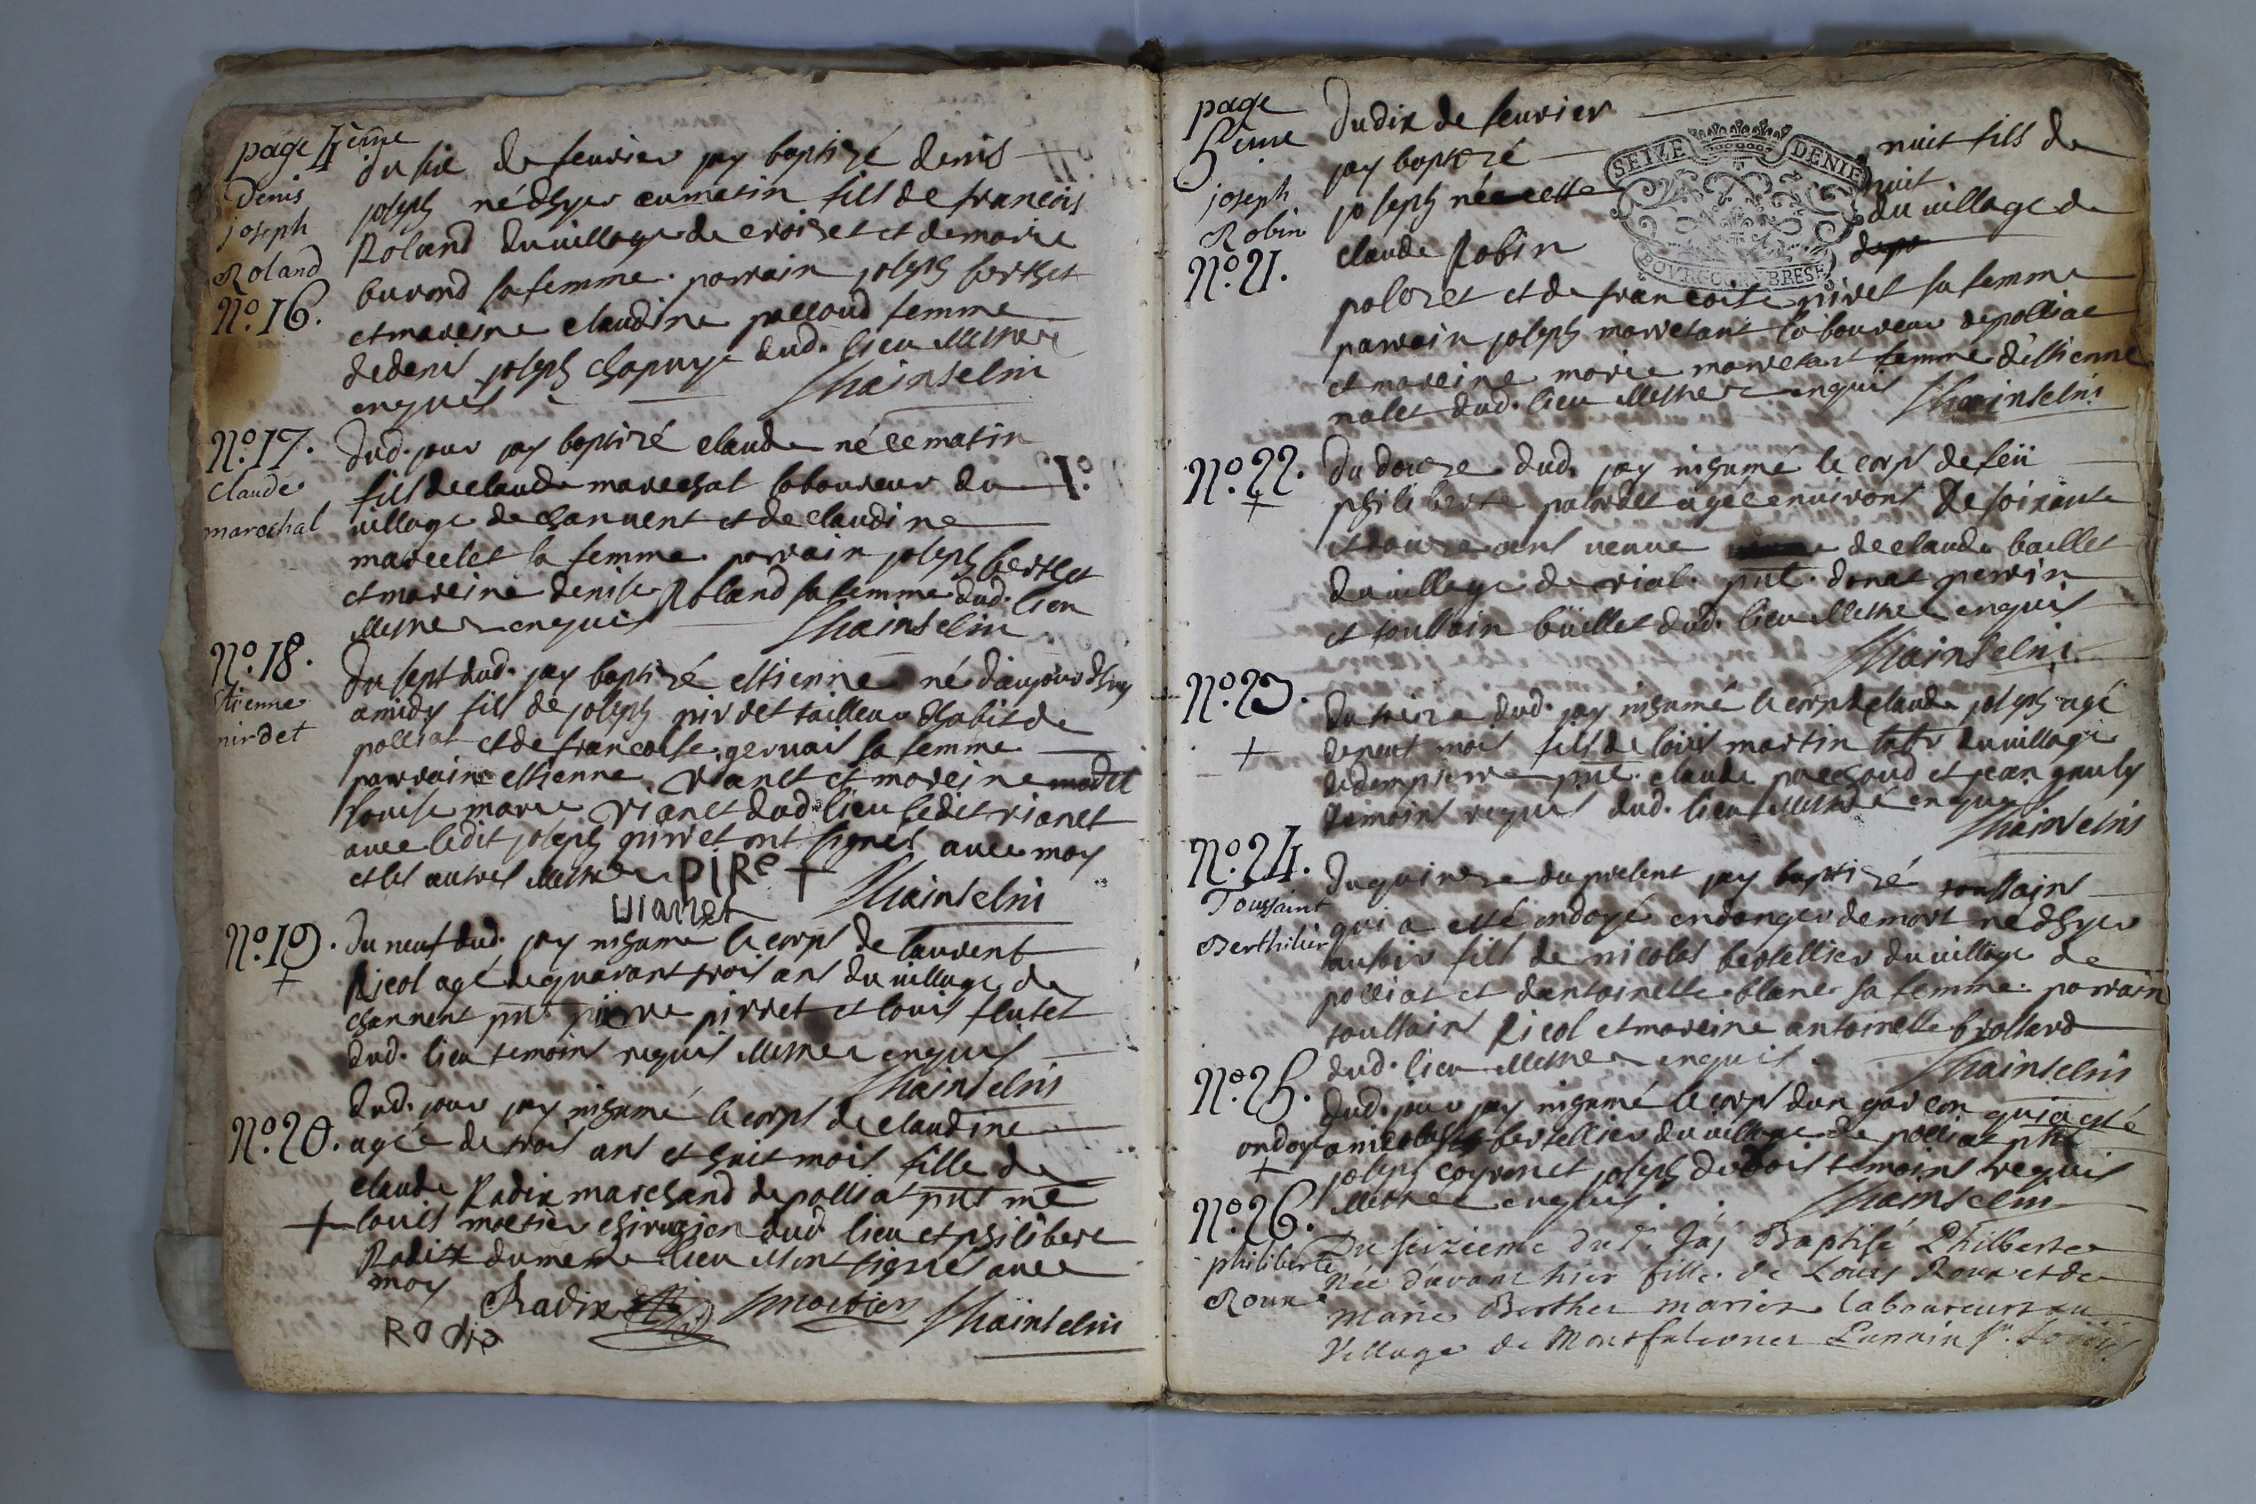 page 4ème
Denis
joseph
Roland
No. 16.
du six de feurier jay baptizé denis
joseph né dhyer au matin fils de francois
Roland du uillage de croiset et de marie
burond sa femme. parrain joseph berthet
et mareine claudine paccoud femme
de denis joseph chapuys dud. lieu illettrez
enquis
Chainselin
No. 17.
Claude
marechal
dud. jour jay baptizé claude né ce matin
fils de claude marechal laboureur du
uillage de chanuent et de claudine
marcelet sa femme. parrain joseph berthet
et mareine denise Roland sa femme dud. lieu
illettrez enquis
Chainselin
No. 18.
Etienne
pirdet
du sept dud. jay baptizé estienne né daujourdhuy
a midy fils de joseph pirret tailleur dhabit de
polliat et de francoise geruais sa femme
parrain estienne vianet et mareine
louise marie vianet dud. lieu ledit vianet
auec ledit joseph pirret ont signés auec moy
et les autres illettrez
PIRe +
uianet
Chainselin
No. 19.
+
du neuf dud. jay inhumé le corps de laurent
Picol agé de quarant trois ans du uillage de
channent pnt pierre pirret et louis flutet
dud. lieu temoins requis illettrez enquis
Chainselin
No. 20.
+
dud. jour jay inhumé le corps de claudine
agée de trois ans et huit mois fille de
claude Radix marchand de polliat pnt me
louis moetier chirugien dud. lieu et philibert
Radix du meme lieu ont signés auec
moy
Radix
Moetier
Chainselin
RAdix
page
5ème
joseph
Robin
No. 21.
SEIZE DENIE
BOVRGOGN BRESE
du dix de feurier
jay baptizé
joseph né cette nuit fils de
nuit
claude Robin du uillage de
poloset et de francoise piret sa femme
parrain joseph morretant laboureur de polliat
et mareine marie morretant femme d'estienne
nalet dud. lieu illettrez enquis
Chainselin
No. 22.
+
du douze dud. jay inhumé le corps de feüe
philiberte paludet agée enuirons de soixante
et douze ans ueuue de claude buellet
du uillage de vial. pnt. donat perrin
et toussain büellet dud. lieu illettrez enquis
Chainselin
No. 23.
+
du treize dud. jay inhumé le corps de claude joseph agé
de neuf mois fils de louis martin labr du uillage
de dempierre pnt. claude pacchoud et jean
temoins requis dud. lieu illettré enquis
Chainselin
No. 24.
Toussaint
Berthilier
du quinze du present jay baptizé toussain
qui a esté ondoyé en danger de mort né dhyer
au soir fils de nicolas bertellier du uillage de
polliat et dantoinette blanc sa femme. parrain
toussain Picol et mareine antoinette brossard
dud. lieu illettrez enquis.
Chainselin
No. 25.
+
dud. jour jay inhumé le corps dun garcon qui a esté
ondoyé a nicolas bertellier du uillage de polliat pnt
joseph coyronet joseph dubois temoins requis
illettrez enquis.
Chainselin
No. 26.
philiberte
Roux
Du seizieme dud. Jay Baptisé Philberte
née d'avant hier fille de Louis Roux et de
Marie Berthet mariez laboureurs au
Village de Montfalconet Parrain Sr. Louis